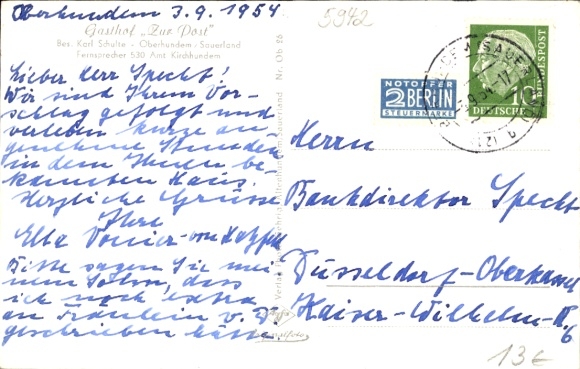 Oberhundem 3.9.1954
5942
Gasthof „Zur Post"
Bes. Karl Schulte - Oberhundem-Sauerland
Fernsprecher 530 Amt Kirchhundem
Lieber Herr Specht!
Wir sind Ihrem Vor-
schlag gefolgt und
verleben kurze an-
genehme Stunden
in dem Ihnen be-
kannten Haus.
Herzliche Grüsse
Ihre
Elba
Bitte sagen Sie mei-
nem Sohn, dass
ich noch extra
an Fräulein v. D.
geschrieben hätte.
Nr. Ob
Verlag
NOTOPFER
2 BERLIN
STEUERMARKE
10
DEUTSCHE BUNDESPOST
Herrn
Bankdirektor Specht
Düsseldorf-Oberkassel
Kaiser-Wilhelm-R.
6
13€